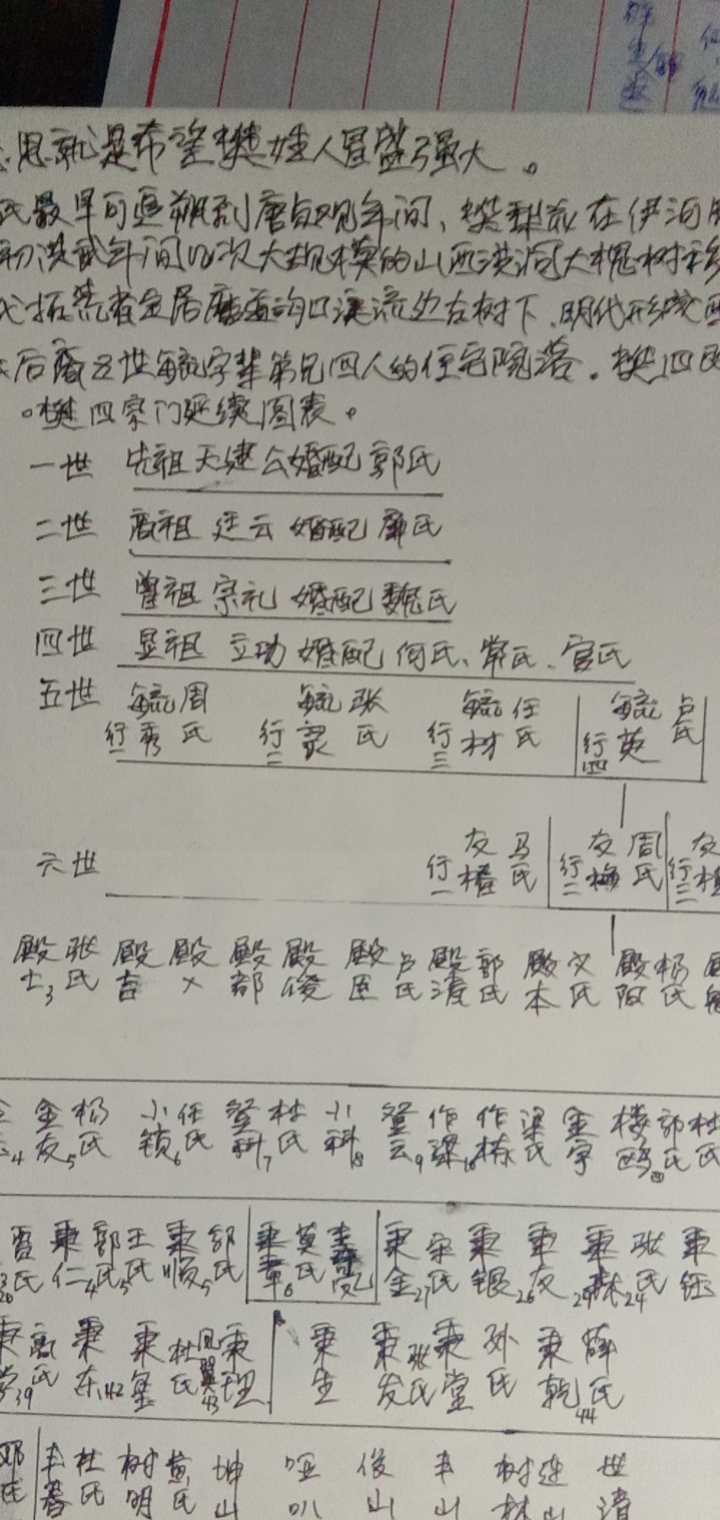 思就是希望樊姓人冒盛强大。
氏最早可追朔到唐贞观年间、樊梨花在伊河
初洪武年间几次大规模的山西洪洞大槐树移
拓荒者定居磨沟口溪流边古树下、明代形成
后裔五世毓字辈弟兄四人的住宅院落。樊四
。樊四宗门延续图表。
一世 先祖天建公婚配郭氏
二世 高祖廷云婚配廉氏
三世 曾祖宗礼婚配魏氏
四世 显祖立功婚配何氏、常氏、宫氏
五世 行一毓秀周氏 行二毓灵张氏 行三毓材任氏 行四毓英卢氏
六世 行一友椿马氏 行二友梅周氏 行三友
殿士3 张氏 殿吉 殿义 殿部 殿俊 殿臣 卢氏 殿清 郭氏 殿本 文氏 殿阳 杨氏
4 金友5 杨氏 小锁6 任氏 登科7 杜氏 小科8 登云9 作梁10 作栋 梁氏 金字 楼鸥 郭氏 杜氏
雷氏 秉仁4 郭氏 王氏 秉顺5 郜氏 秉章6 莫氏 秉金27 宋氏 秉银26 秉友 秉林24 张氏 秉钰
39 高氏 秉东42 秉玺 杜氏 凤翼43 秉理 秉生 秉发 张氏 秉堂 孙氏 秉乾44 薛氏
邓氏 丰春 杜氏 树明 黄氏 坤山 哑叭 俊山 丰山 树林 连山 世清